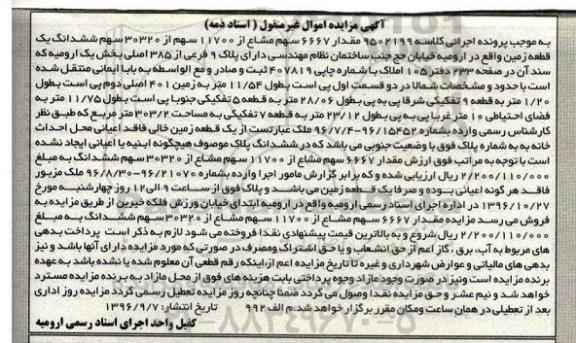 آگهی مزایده اموال غیرمنقول ( اسناد ذمه)
به موجب پرونده اجرائی کلاسه ۹۵۰۲۱۹۹ مقدار ۶۶۶۷ سهم مشاع از ۱۱۷۰۰ سهم از ۳۰۳۲۰ سهم ششدانگ یک
قطعه زمین واقع در ارومیه خیابان حج جنب ساختمان نظام مهندسی دارای پلاک ۹ فرعی از ۳۸۵ اصلی بخش یک ارومیه که
سند آن در صفحه ۲۳۳ دفتر ۱۰۵ املاک با شماره چاپی ۴۰۷۸۱۹ ثبت و صادر و مع الواسطه به بابا ایمانی منتقل شده
است با حدود و مشخصات شمالا در دو قسمت اول پی است بطول ۱۱/۵۴ متر به زمین ۴۰۱ اصلی دوم پی است بطول
۱/۲۰ متر به قطعه ۹ تفکیکی شرقا پی به پی بطول ۲۸/۰۶ متر به قطعه ۵ تفکیکی جنوبا پی است بطول ۱۱/۷۵ متر به
فضای احتیاطی ۱۰ متر غربا پی به پی بطول ۲۳/۱۲ متر به قطعه ۷ تفکیکی به مساحت ۳۰۳/۲ متر مربع که طبق نظر
کارشناس رسمی وارده بشماره ۹۶/۱۵۴۵۲-۹۶/۷/۴ ملک عبارتست از یک قطعه زمین خالی فاقد اعیانی محل احداث
خانه به به شماره پلاک فوق با وضعیت جنوبی می باشد که در ششدانگ پلاک موصوف هیچگونه ابنیه یا اعیانی ایجاد نشده
است با توجه به مراتب فوق ارزش مقدار ۶۶۶۷ سهم مشاع از ۱۱۷۰۰ سهم مشاع از ۳۰۳۲۰ سهم ششدانگ به مبلغ
۲/۲۰۰/۱۱۰/۰۰۰ ریال ارزیابی شده و که برابر گزارش مامور اجرا وارده بشماره ۹۶/۲۱۰۷۰-۹۶/۸/۳۰ ملک مزبور
فاقد هر گونه اعیانی بوده و صرفا یک قطعه زمین می باشد و پلاک فوق از ساعت ۹ الی ۱۲ روز چهارشنبه مورخ
۱۳۹۶/۱۰/۲۷ در اداره اجرای اسناد رسمی ارومیه واقع در ارومیه ابتدای خیابان ورزش فلکه خیرین از طریق مزایده به
فروش می رسد مزایده مقدار ۶۶۶۷ سهم مشاع از ۱۱۷۰۰ سهم مشاع از ۳۰۳۲۰ سهم ششدانگ به مبلغ
۲/۲۰۰/۱۱۰/۰۰۰ ریال شروع و به بالاترین قیمت پیشنهادی نقدا فروخته می شود لازم به ذکر است پرداخت بدهی
های مربوط به آب، برق ، گاز اعم از حق انشعاب و یا حق اشتراک ومصرف در صورتی که مورد مزایده دارای آنها باشد و نیز
بدهی های مالیاتی و عوارض شهرداری و غیره تا تاریخ مزایده اعم از اینکه رقم قطعی آن معلوم شده یا نشده باشد به عهده
برنده مزایده است ونیز در صورت وجود مازاد وجوه پرداختی بابت هزینه های فوق از محل مازاد به برنده مزایده مسترد
خواهد شد و نیم عشر و حق مزایده نقدا وصول می گردد ضمنا چنانچه روز مزایده تعطیل رسمی گردد مزایده روز اداری
بعد از تعطیلی در همان ساعت ومکان مقرر برگزار خواهد شد. م الف ۹۹۲ تاریخ انتشار: ۱۳۹۶/۹/۷
کفیل واحد اجرای اسناد رسمی ارومیه